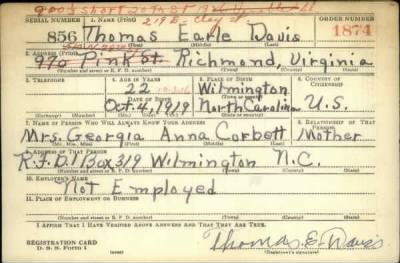 SERIAL NUMBER 1. NAME (Print) ORDER NUMBER
856 Thomas Earle Davis 1874
(First) (Middle) (Last)
2. ADDRESS (Print)
970 Pink St. Richmond, Virginia
(Number and street or R. F. D. number) (Town) (County) (State)
3. TELEPHONE 4. AGE IN YEARS 5. PLACE OF BIRTH 6. COUNTRY OF CITIZENSHIP
22 Wilmington
(Town or county)
DATE OF BIRTH
Oct. 4, 1919 North Carolina U.S.
(Exchange) (Number) (Mo.) (Day) (Yr.) (State or country)
7. NAME OF PERSON WHO WILL ALWAYS KNOW YOUR ADDRESS 8. RELATIONSHIP OF THAT PERSON
Mrs. Georgia Anna Corbett Mother
(Mr., Mrs., Miss) (First) (Middle) (Last)
9. ADDRESS OF THAT PERSON
R.F.D. 1 Box 319 Wilmington N.C.
(Number and street or R. F. D. number) (Town) (County) (State)
10. EMPLOYER'S NAME
Not Employed
11. PLACE OF EMPLOYMENT OR BUSINESS
(Number and street or R. F. D. number) (Town) (County) (State)
I AFFIRM THAT I HAVE VERIFIED ABOVE ANSWERS AND THAT THEY ARE TRUE.
REGISTRATION CARD
D. S. S. Form 1
Thomas E. Davis
(Registrant's signature)